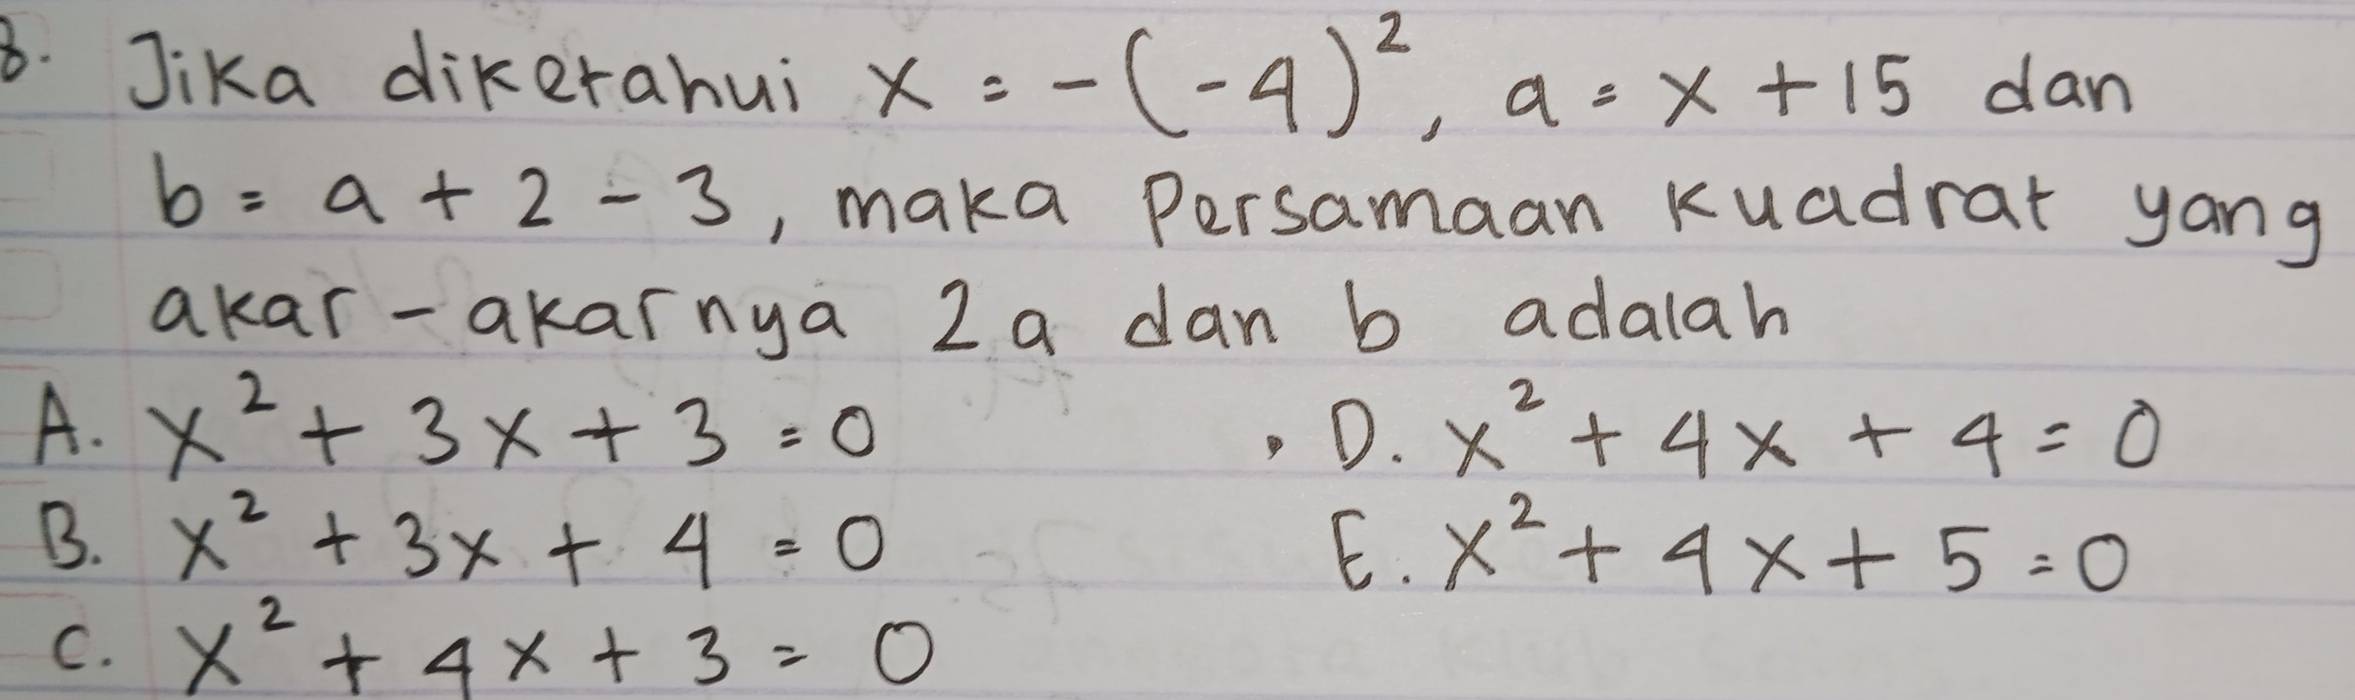 8. Jika diketahui x = -(-4)², a = x + 15 dan
b = a + 2 - 3, maka Persamaan kuadrat yang
akar-akarnya 2a dan b adalah
A. x² + 3x + 3 = 0
B. x² + 3x + 4 = 0
C. x² + 4x + 3 = 0
D. x² + 4x + 4 = 0
E. x² + 4x + 5 = 0